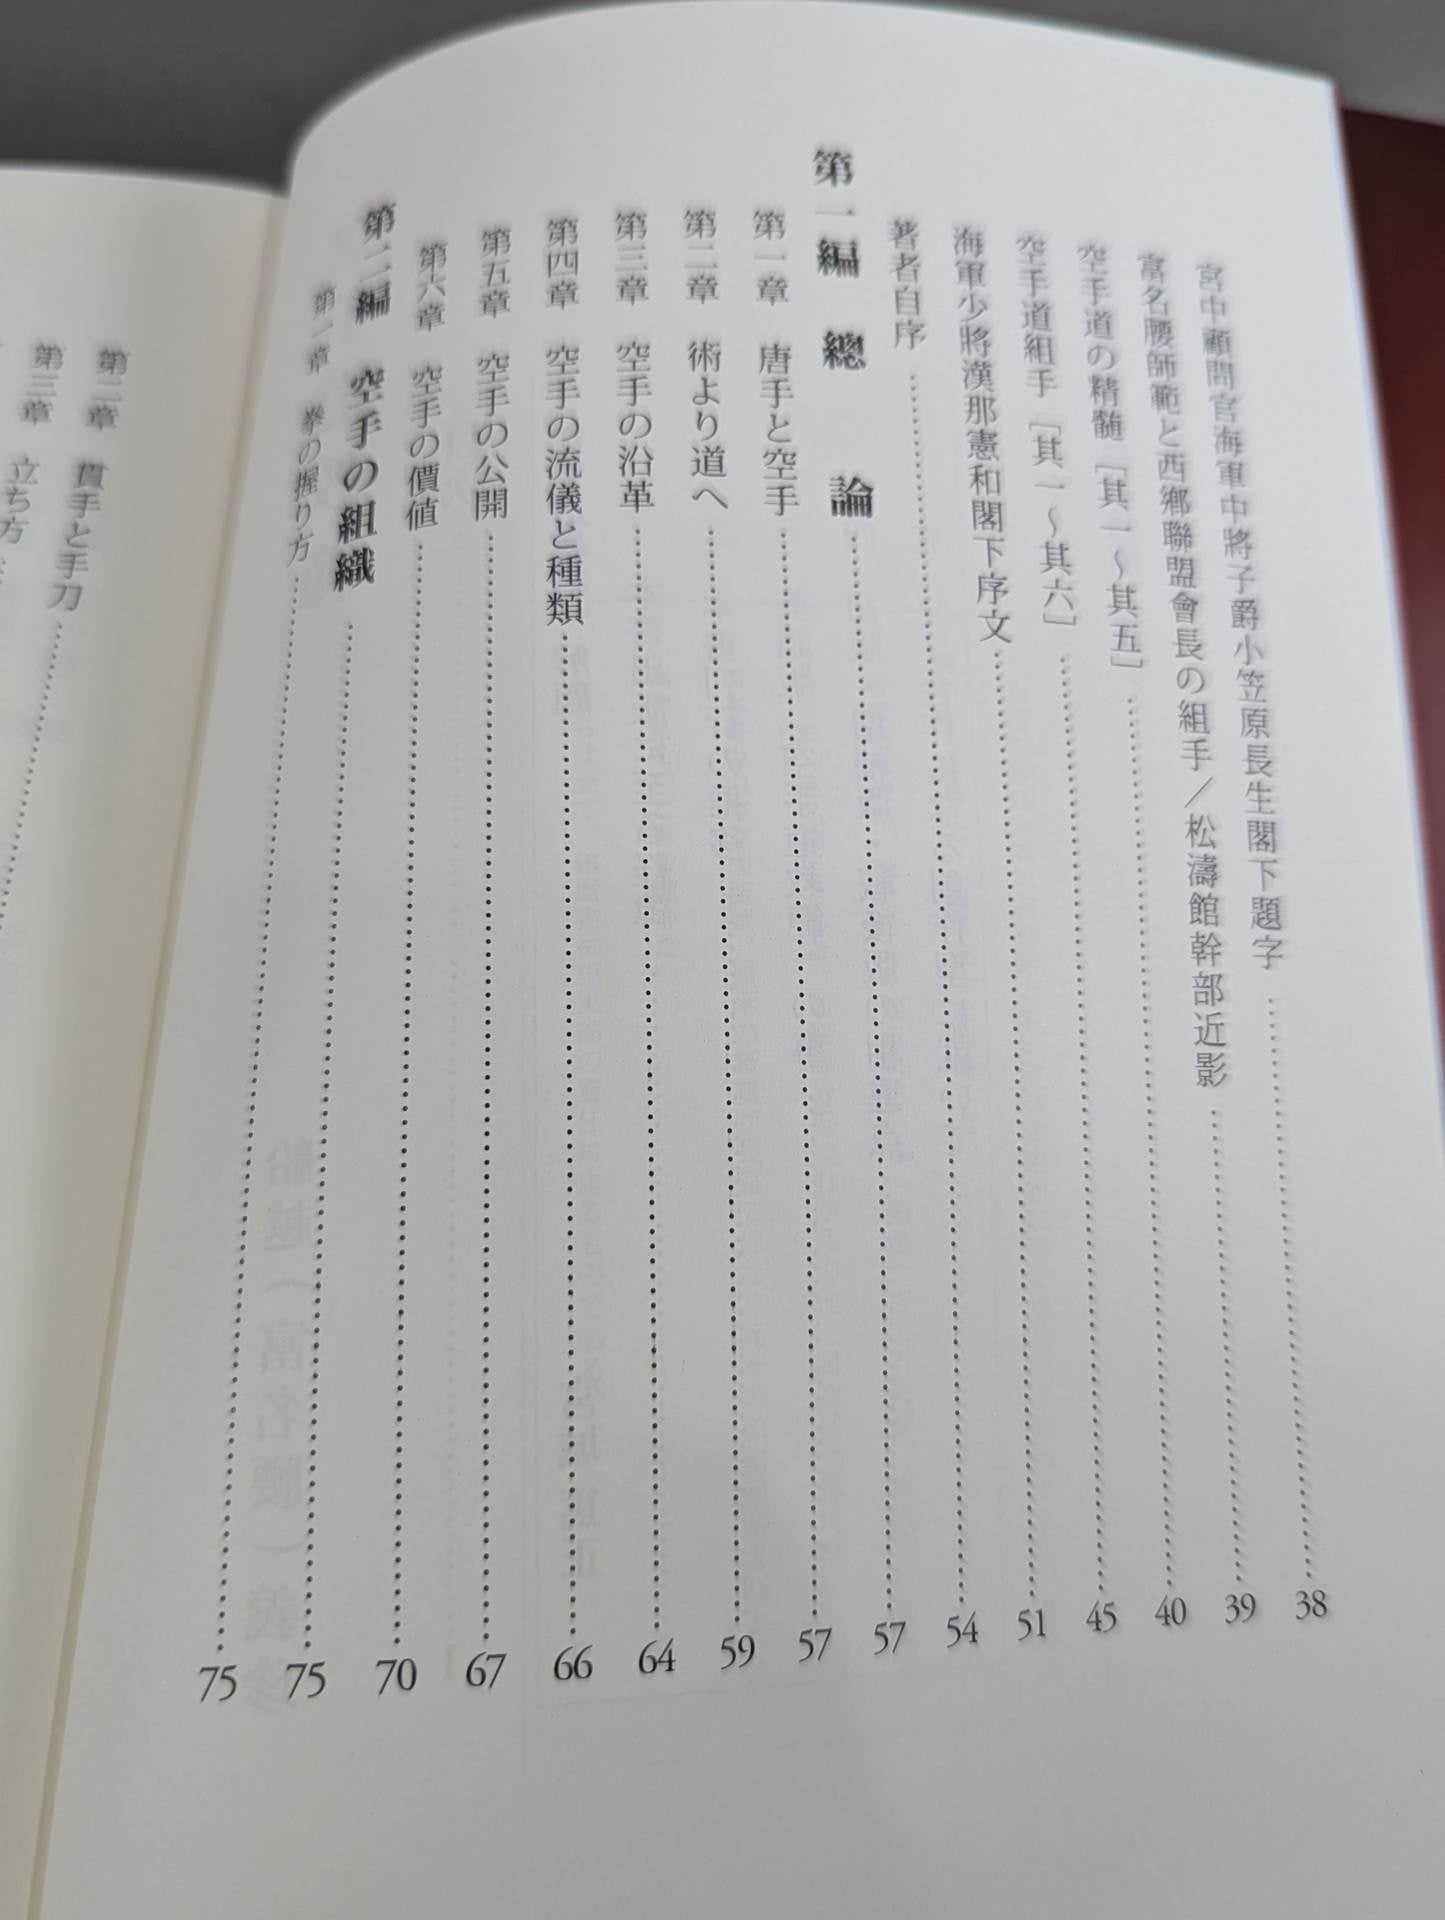 宮中顧問官海軍中將子爵小笠原長生閣下題字…………38
富名腰師範と西郷聯盟會長の組手／松濤館幹部近影…………39
空手道の精髄［其一〜其五］…………40
空手道組手［其一〜其六］…………45
海軍少將漢那憲和閣下序文…………51
著者自序…………54
第一編　總　論…………57
第一章　唐手と空手…………57
第二章　術より道へ…………59
第三章　空手の沿革…………64
第四章　空手の流儀と種類…………66
第五章　空手の公開…………67
第六章　空手の價値…………70
第二編　空手の組織…………75
第一章　拳の握り方…………75
第二章　貫手と手刀…………
第三章　立ち方